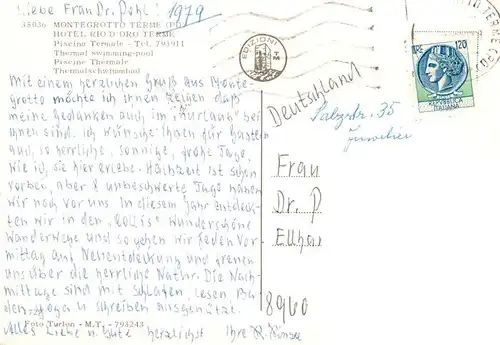 Liebe Frau Dr. Pohl! 1979
35036 MONTEGROTTO TERME (PD)
HOTEL RIO D'ORO TERME
Piscine Termale - Tel. 793911
Thermal swimming-pool
Piscine Thermale
Thermalschwimmbad
EDIZIONI
TM
TERME (PD)
LIRE 120
REPUBBLICA
ITALIANA
Mit einem herzlichen Gruß aus Monte-
grotto möchte ich ihnen zeigen daß
meine Gedanken auch im "Kurlaub" bei
ihnen sind. ich wünsche ihnen für Gastein
auch so herrliche, sonnige, frohe Tage,
wie ich sie hier erlebe. Halbzeit ist schon
vorbei, aber 8 unbeschwerte Tage haben
wir noch vor uns. In diesem Jahr entdeck-
ten wir in den "Collis" wunderschöne
Wanderwege und so gehen wir jeden Vor-
mittag auf Neuentdeckung und freuen
uns über die herrliche Natur. Die Nach-
mittage sind mit schlafen, lesen, Ba
den, Yoga u schreiben ausgenützt.
Alles Liebe u. Gute herzlichst Ihre
Foto Turlon - M.T. - 793243
Deutschland
Salzstr. 35
Juwelier
Frau
Dr. P
Ellwan